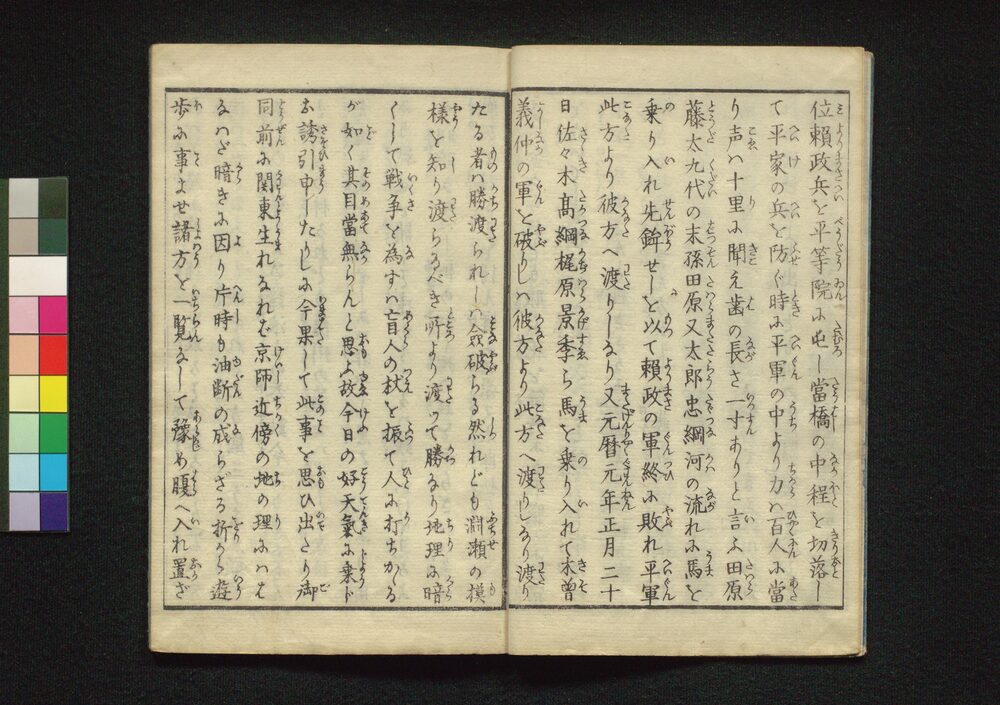 位頼政兵を平等院に屯し當橋の中程を切落し
て平家の兵を防ぐ時に平軍の中より力は百人に當
り声は十里に聞え歯の長さ一寸ありと言ふ田原
藤太九代の末孫田原又太郎忠綱河の流れに馬を
乗り入れ先鉾せしを以て頼政の軍終に敗れ平軍
此方より彼方へ渡りしなり又元暦元年正月二十
日佐々木髙綱梶原景季ら馬を乗り入れて木曽
義仲の軍を破りしは彼方より此方へ渡りしなり渡り
たる者は勝渡られしは敗らる然れども淵瀬の模
様を知り渡らるべき所より渡つて勝なり地理に暗
くして戦争を為すは盲人の杖を振て人に打ちかゝる
が如く其目當無らんと思ふ故今日の好天氣に乗じ
お誘引申したりしに今果して此事を思ひ出たり御
同前に関東生れなれば京師近傍の地の理には
なほど暗きに因り片時も油断の成らざる折から遊
歩に事よせ諸方を一覧なして豫め腹へ入れ置ざ